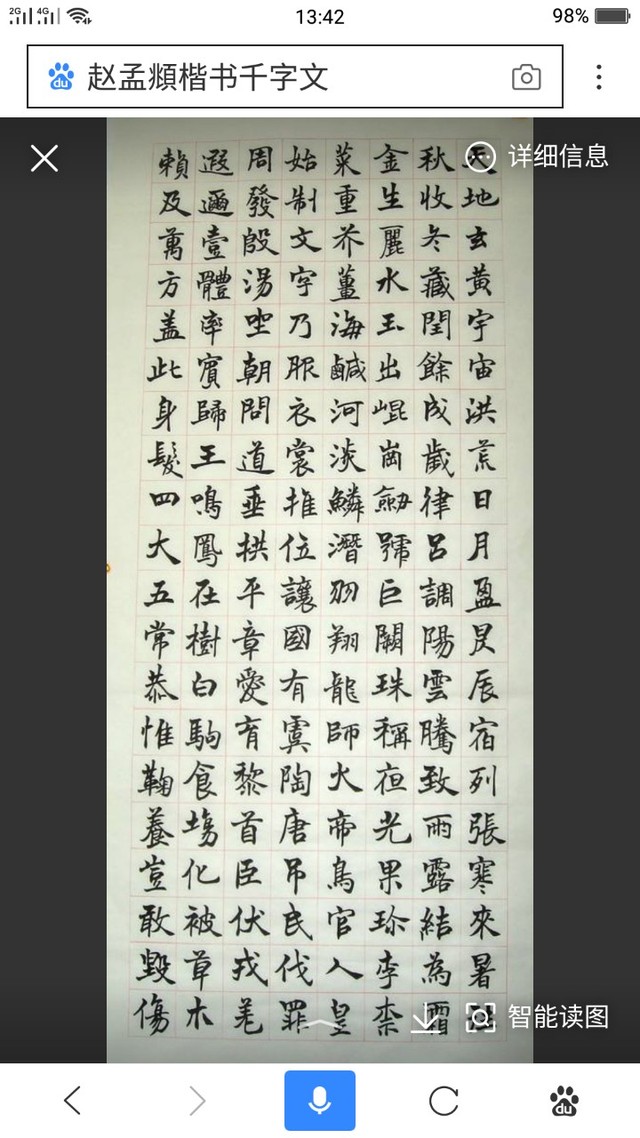 2G 4G 13:42 98%
du 赵孟頫楷书千字文
详细信息
天地玄黃宇宙洪荒日月盈昃辰宿列張寒來暑
秋收冬藏閏餘成歲律呂調陽雲騰致雨露結為霜
金生麗水玉出崐崗劒號巨闕珠稱夜光果珍李柰
菜重芥薑海鹹河淡鱗潛羽翔龍師火帝鳥官人皇
始制文字乃服衣裳推位讓國有虞陶唐吊民伐罪
周發殷湯坐朝問道垂拱平章愛育黎首臣伏戎羌
遐邇壹體率賓歸王鳴鳳在樹白駒食場化被草木
賴及萬方盖此身髮四大五常恭惟鞠養豈敢毀傷
智能读图
du